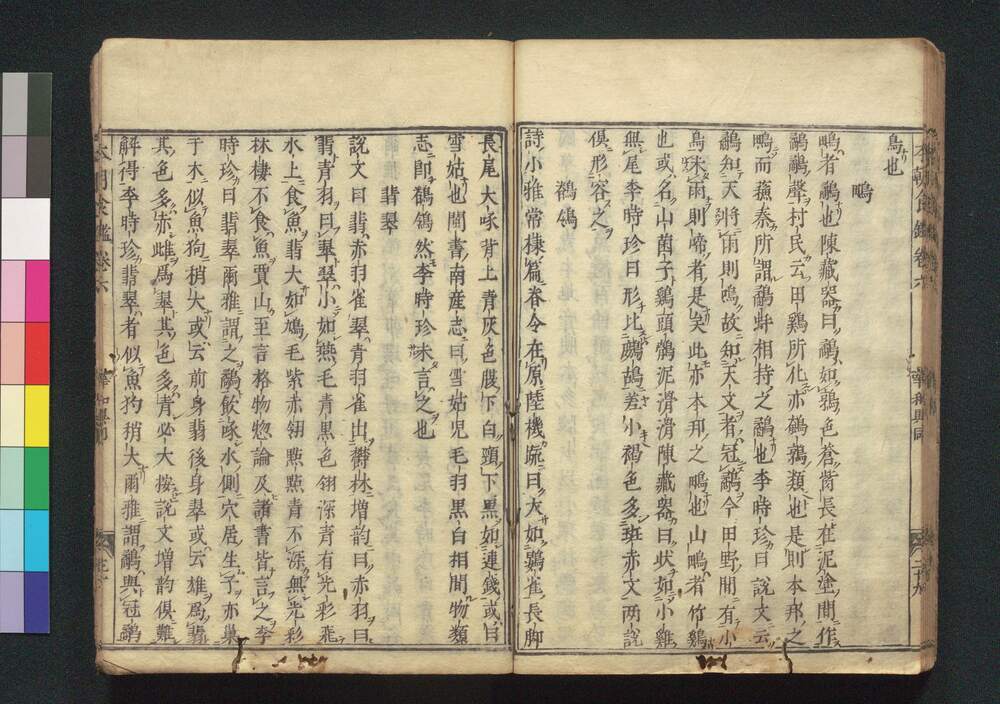 鳥也
鴫
鴫者鷸也陳藏器曰鷸如鶉色蒼觜長在泥塗間作
鷸鷸聲村民云田鷄所化亦鵪鶉類也是則本邦之
鴫而蘓秦所謂鷸蚌相持之鷸也李時珍曰說文云
鷸知天將雨則鳴故知天文者冠鷸今田野間有小
鳥未雨則啼者是矣此亦本邦之鴫也山鴫者竹鷄
也或名山菌子鷄頭鶻泥滑滑陳藏器曰状如小雞
無尾李時珍曰形比鷓鴣差小褐色多斑赤文两說
俱形容之
鶺鴒
詩小雅常棣篇脊令在原陸機疏曰大如鷃雀長脚
長尾大喙背上青灰色腹下白頸下黒如連錢或曰
雪姑也閩書南産志曰雪姑児毛羽黒白相間物類
志即鶺鴒然李時珍未言之也
翡翠
說文曰翡赤羽雀翠青羽雀出欝林増韵曰赤羽曰
翡青羽曰翠翠小如燕毛青黒色翎深青有光彩飛
水上食魚翡大如鳩毛紫赤翎㸃㸃青不深無光彩
林棲不食魚賈山至言格物惣論及諸書皆言之李
時珍曰翡翠爾雅謂之鷸飲啄水側穴居生子亦巢
于木似魚狗稍大或云前身翡後身翠或云雄爲翡
其色多赤雌爲翠其色多青必大按說文増韵俱難
解得李時珍翡翠者似魚狗稍大爾雅謂鷸與冠鷸